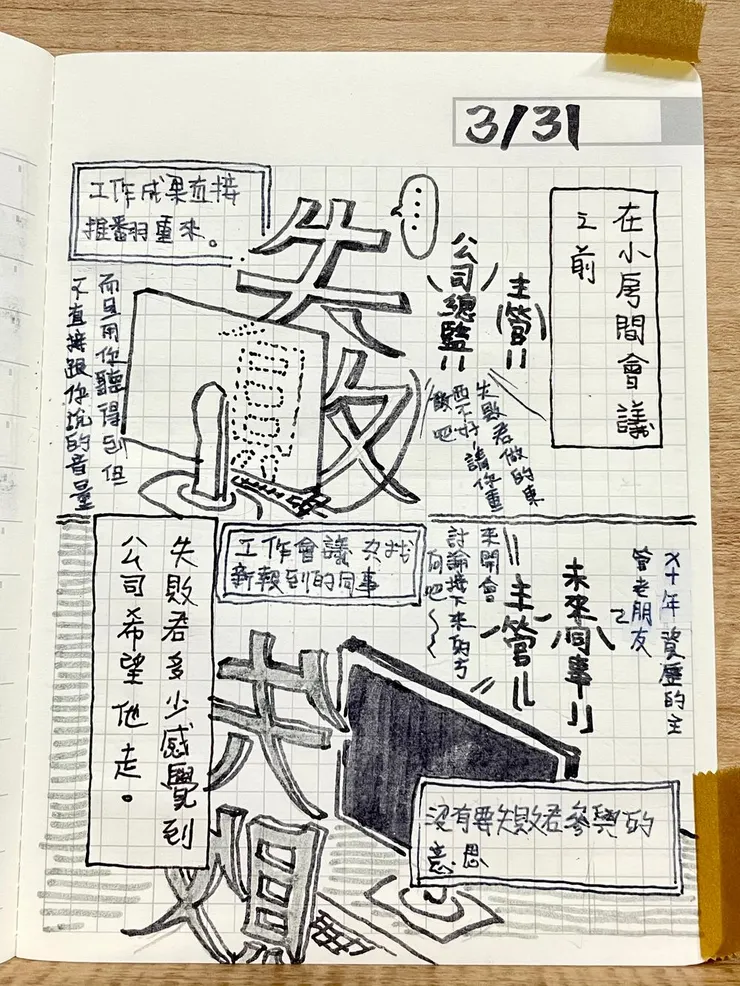 3/31
在小房間會議
之前
主管
公司總監
失敗君做的東
西不好,請你重
做吧
....
失敗
工作成果直接
推翻重來。
而且用你聽得到但
不直接跟你說的音量
X十年資歷的主
管老朋友
未來同事
主管
來開會
討論接下來的方
向吧~
工作會議只找
新報到的同事
失敗
沒有要失敗君參與的
意思
失敗君多少感覺到
公司希望他走。